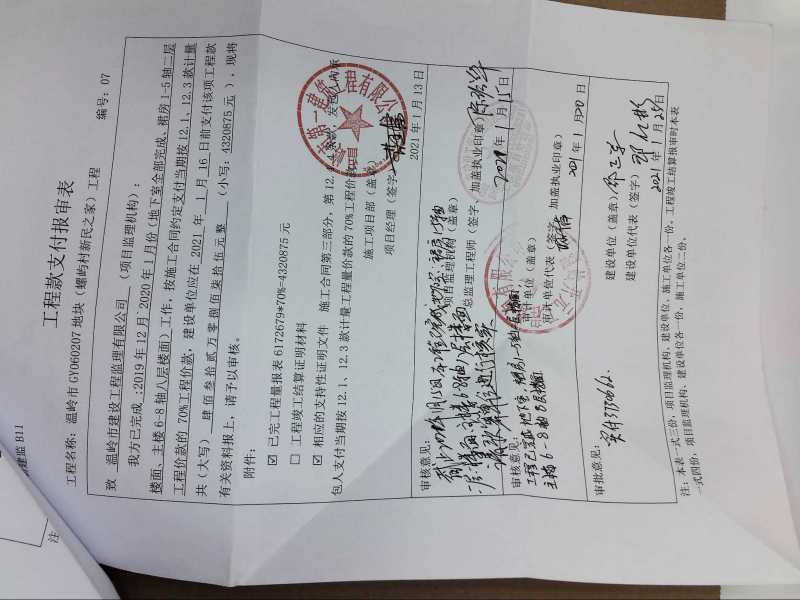 工程款支付报审表
工程名称:温岭市GY060207地块(螺屿村新民之家)工程 编号:07
致 温岭市建设工程监理有限公司 (项目监理机构):
我方已完成:2019年12月-2020年1月份(地下室全部完成、裙房1-5轴二层
楼面、主楼6-8轴八层楼面)工作,按施工合同约定支付当期按12.1、12.3款计量
工程价款的70%工程价款,建设单位应在 2021 年 1 月 16 日前支付该项工程款
共(大写)肆佰叁拾贰万零捌佰柒拾伍元整 (小写:4320875元),现将
有关资料报上,请予以审核。
附件:
☑ 已完工程量报表6172679*70%=4320875元
☐ 工程竣工结算证明材料
☑ 相应的支持性证明文件 施工合同第三部分,第12.
包人支付当期按12.1、12.3款计量工程量价款的70%工程价
施工项目部(盖章)
项目经理(签字)
2021年1月13日
审核意见:
项目监理机构(盖章)
总监理工程师(签字、加盖执业印章)
2021年1月15日
审核意见:
工程已完成地下室
主楼6-8轴8层楼面
审计单位(盖章)
审计单位代表(签字、加盖执业印章)
2021年1月20日
审批意见:
建设单位(盖章)
建设单位代表(签字)
2021年1月25日
注:本表一式三份,项目监理机构、建设单位、施工单位各一份,工程竣工结算报审时本表
一式四份,项目监理机构、建设单位各一份,施工单位二份。
建监 B11
注